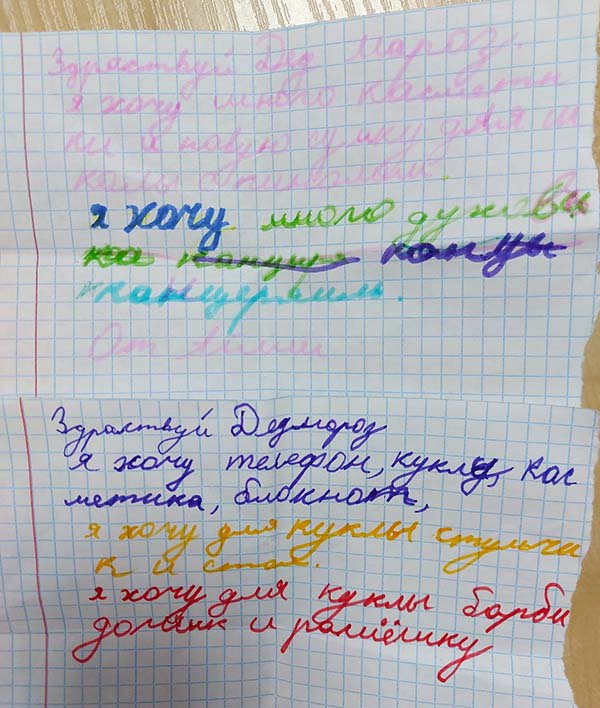 Здраствуй Дед Мароз.
я хочу много касметь
ки и новую сумку для ш
колы
я хочу много духов
канцы
канцермиль.
От
Здраствуй Дедмороз
я хочу телефон, куклу, кас
метика, блокнот,
я хочу для куклы стульчи
к и стол.
я хочу для куклы барби
домик и ромёшку